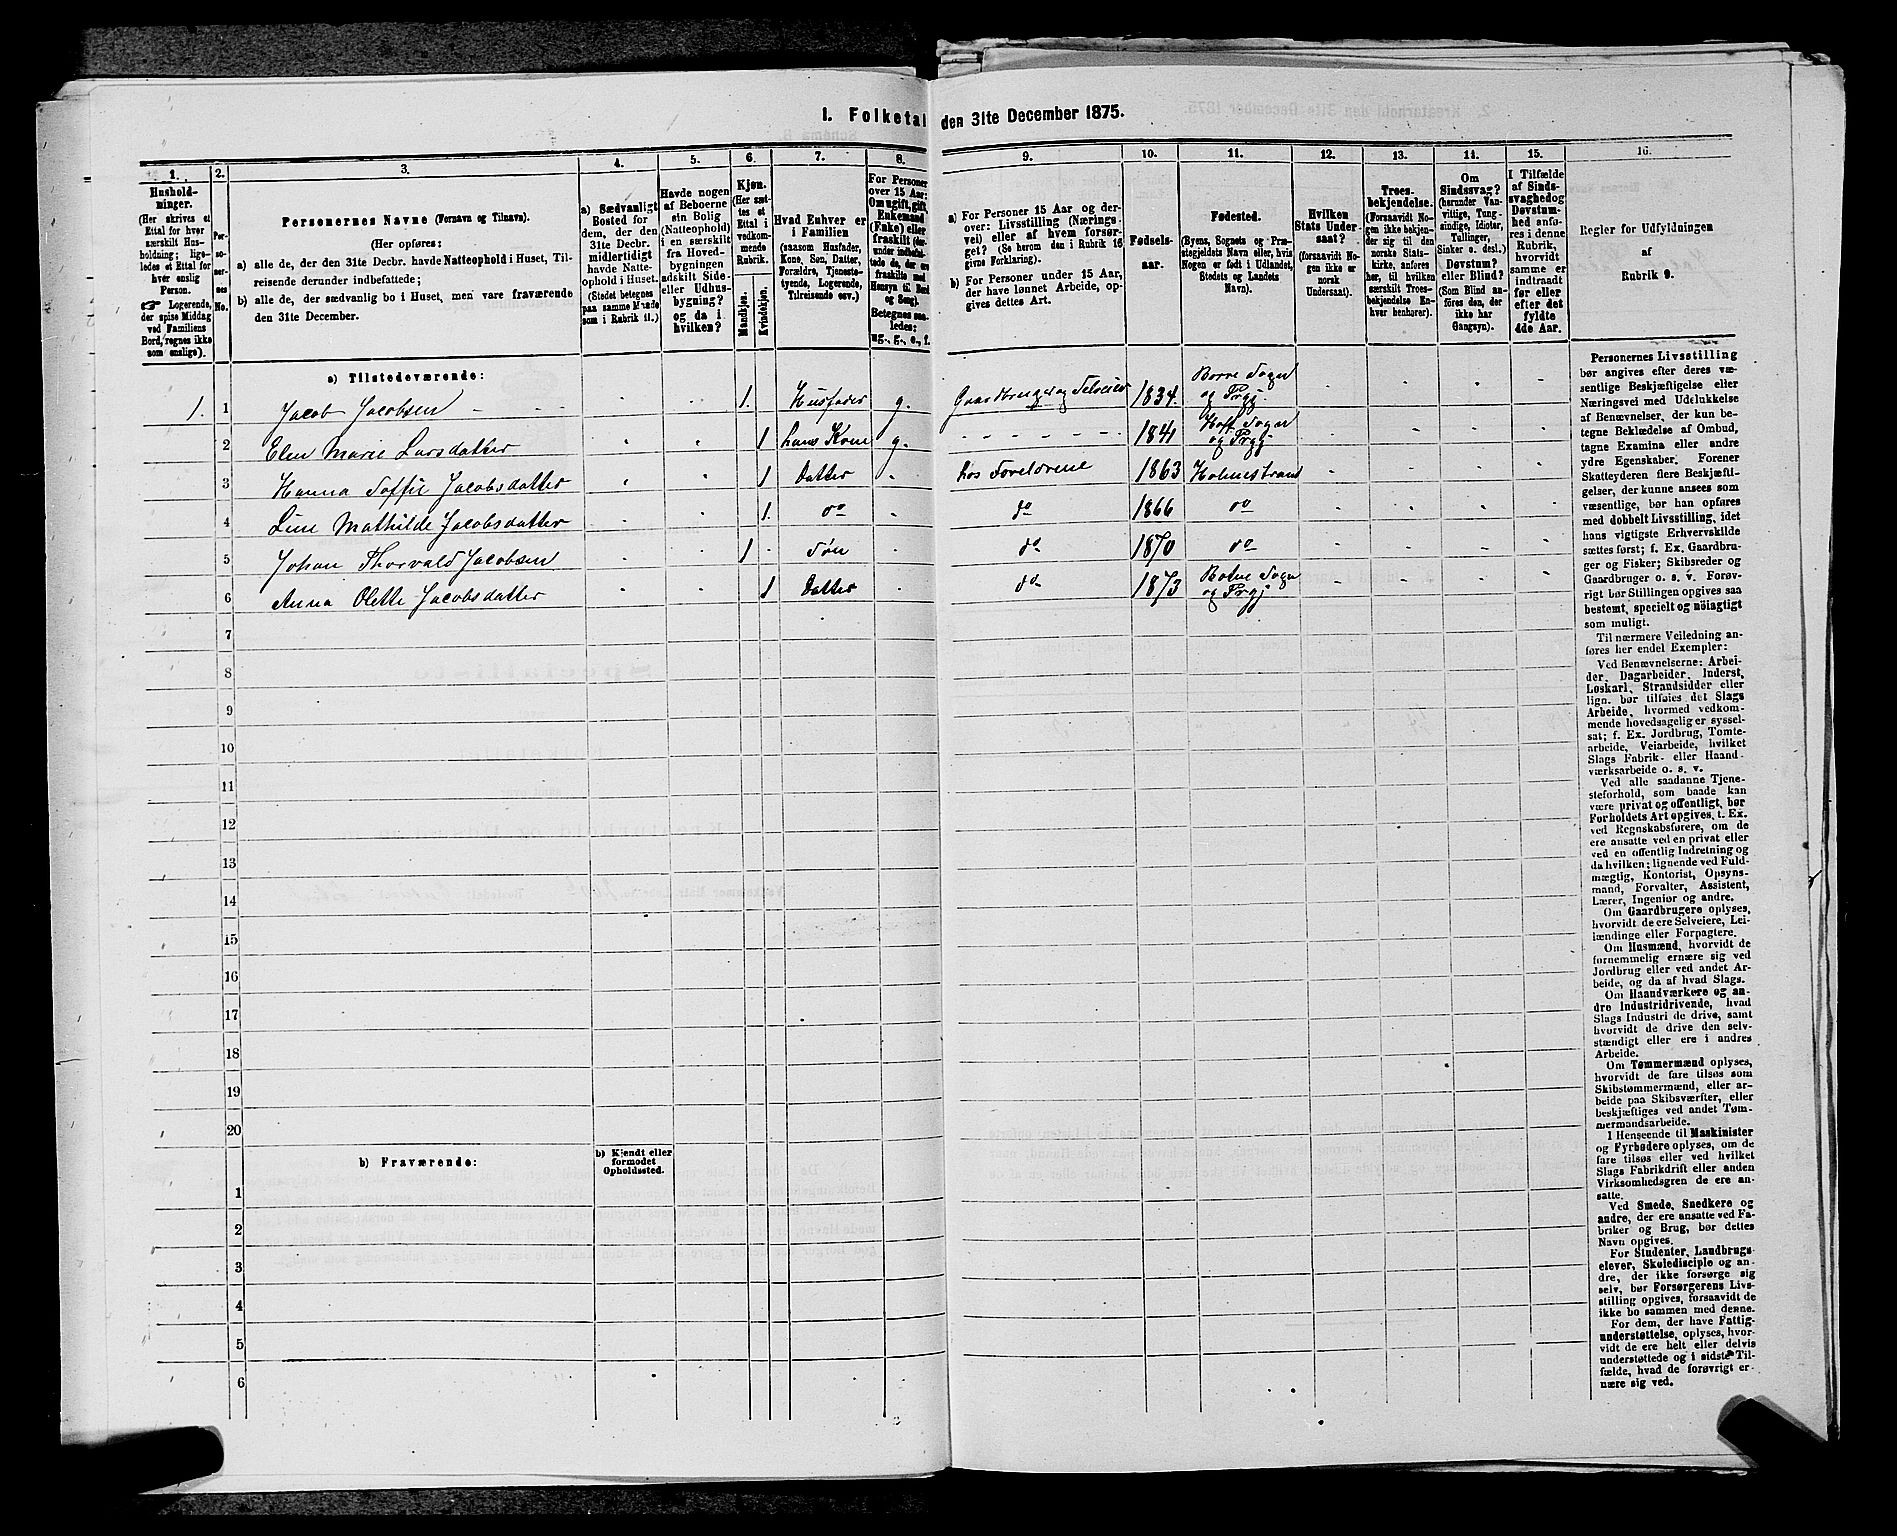 I. Folketal den 31te December 1875.
1. 2. 3. 4. 5. 6. 7. 8. 9. 10. 11. 12. 13. 14. 15. 16.
Hushold-
ninger.
(Her skrives et
Ettal for hver
særskilt Hus-
holdning; lige-
ledes et Ettal for
hver enslig
Person.
☞ Logerende,
der spise Middag
ved Familiens
Bord, regnes ikke
som enslige).
Per-
so-
ner-
nes
No.
Personernes Navne (Fornavn og Tilnavn).
(Her opføres:
a) alle de, der den 31te Decbr. havde Natteophold i Huset, Til-
reisende derunder indbefattede;
b) alle de, der sædvanlig bo i Huset, men vare fraværende
den 31te December.
a) Sædvanligt
Bosted for
dem, der den
31te Decbr.
midlertidigt
havde Natte-
ophold i Huset.
(Stedet betegnes
paa samme Maade
som i Rubrik 11.)
Havde nogen
af Beboerne
sin Bolig
(Natteophold)
i en særskilt
fra Hoved-
bygningen
adskilt Side-
eller Udhus-
bygning?
og da i
hvilken?
Kjøn.
(Her sæt-
tes et
Ettal i
vedkom-
mende
Rubrik.
Mandkjøn.
Kvindekjøn.
Hvad Enhver er
i Familien
(saasom Husfader,
Kone, Søn, Datter,
Forældre, Tjeneste-
tyende, Logerende,
Tilreisende osv.)
For Personer
over 15 Aar:
Om ugift, gift,
Enkemand
(Enke) eller
fraskilt (der-
under indbefat-
tede de, der ere
fraskilte med
Hensyn til Bord
og Seng).
Betegnes saa-
ledes:
ug., g., e., f.
a) For Personer 15 Aar og der-
over: Livsstilling (Nærings-
vei) eller af hvem forsør-
get? (Se herom den i Rubrik 16
givne Forklaring).
b) For Personer under 15 Aar,
der have lønnet Arbeide, op-
gives dettes Art.
Fødsels-
aar.
Fødested.
(Byens, Sognets og Præ-
stegjeldets Navn eller, hvis
Nogen er født i Udlandet,
Stedets og Landets
Navn).
Hvilken
Stats Under-
saat?
(forsaavidt No-
gen ikke er
norsk
Undersaat).
Troes-
bekjendelse.
(Forsaavidt No-
gen ikke bekjen-
der sig til den
norske Stats-
kirke, anføres
her, til hvilken
særskilt Troes-
bekjendelse En-
hver henhører).
Om
Sindssvag?
(herunder Van-
vittige, Tung-
sindige, Idioter,
Tullinger,
Sinker o. desl.)
Døvstum?
eller Blind?
(Som Blind an-
føres den, der
ikke har
Gangsyn).
I Tilfælde
af Sinds-
svaghed og
Døvstum-
hed anfø-
res i denne
Rubrik,
hvorvidt
samme er
indtraadt
før eller
efter det
fyldte
4de Aar.
Regler for Udfyldningen
af
Rubrik 9.
a) Tilstedeværende:
1. 1 Jacob Jacobsen 1. Husfader g. Gaardbruger og Selveier 1834. Borre Sogn og Prgj.
2 Elen Marie Larsdatter 1 hans Kone g. 1841 Hoff Sogn og Prgj.
3 Hanna Soffie Jacobsdatter 1 Datter hos Foreldrene 1863 Holmestrand
4 Line Mathilde Jacobsdatter 1. do do 1866 do
5 Johan Thorvald Jacobsen 1 Søn do 1870 do
6 Anna Olette Jacobsdatter 1 Datter do 1873 Botne Sogn og Prgj
7
8
9
10
11
12
13
14
15
16
17
18
19
20
b) Fraværende:
b) Kjendt eller
formodet
Opholdssted.
1
2
3
4
5
6
Personernes Livsstilling
bør angives efter deres væ-
sentlige Beskjæftigelse eller
Næringsvei med Udelukkelse
af Benævnelser, der kun be-
tegne Beklædelse af Ombud,
tagne Examina eller andre
ydre Egenskaber. Forener
Skatteyderen flere Beskjæfti-
gelser, der kunne ansees som
væsentlige, bør han opføres
med dobbelt Livsstilling, idet
hans vigtigste Erhvervskilde
sættes først; f. Ex. Gaardbru-
ger og Fisker; Skibsreder og
Gaardbruger o. s. v. Forøv-
rigt bør Stillingen opgives saa
bestemt, specielt og nöiagtigt
som muligt.
Til nærmere Veiledning an-
føres her endel Exempler:
Ved Benævnelserne: Arbei-
der, Dagarbeider, Inderst,
Løskarl, Strandsidder eller
lign. bør tilføies det Slags
Arbeide, hvormed vedkom-
mende hovedsagelig er syssel-
sat; f. Ex. Jordbrug, Tomte-
arbeide, Veiarbeide, hvilket
Slags Fabrik- eller Haand-
værksarbeide o. s. v.
Ved alle saadanne Tjene-
steforhold, som baade kan
være privat og offentligt, bør
Forholdets Art opgives, t. Ex.
ved Regnskabsførere, om de
ere ansatte ved en privat eller
ved en offentlig Indretning og
da hvilken; lignende ved Fuld-
mægtig, Kontorist, Opsyns-
mand, Forvalter, Assistent,
Lærer, Ingeniør og andre.
Om Gaardbrugere oplyses,
hvorvidt de ere Selveiere, Lei-
lændinge eller Forpagtere.
Om Husmænd, hvorvidt de
fornemmelig ernære sig ved
Jordbrug eller ved andet Ar-
beide, og da af hvad Slags.
Om Haandværkere og an-
dre Industridrivende, hvad
Slags Industri de drive, samt
hvorvidt de drive den selv-
stændigt eller ere i andres
Arbeide.
Om Tømmermænd oplyses,
hvorvidt de fare tilsøs som
Skibstømmermænd, eller ar-
beide paa Skibsværfter, eller
beskjæftiges ved andet Tøm-
mermandsarbeide.
I Henseende til Maskinister
og Fyrbødere oplyses, om de
fare tilsøs eller ved hvilket
Slags Fabrikdrift eller anden
Virksomhedsgren de ere an-
satte.
Ved Smede, Snedkere og
andre, der ere ansatte ved Fa-
briker og Brug, bør dettes
Navn opgives.
For Studenter, Landbrugs-
elever, Skoledisciple og an-
dre, der ikke forsørge sig
selv, bør Forsørgerens Livs-
stilling opgives, forsaavidt de
ikke bo sammen med denne.
For dem, der have Fattig-
understøttelse, oplyses, hvor-
vidt de ere helt eller delvis
understøttede og i sidste Til-
fælde, hvad de forøvrigt er-
nære sig ved.